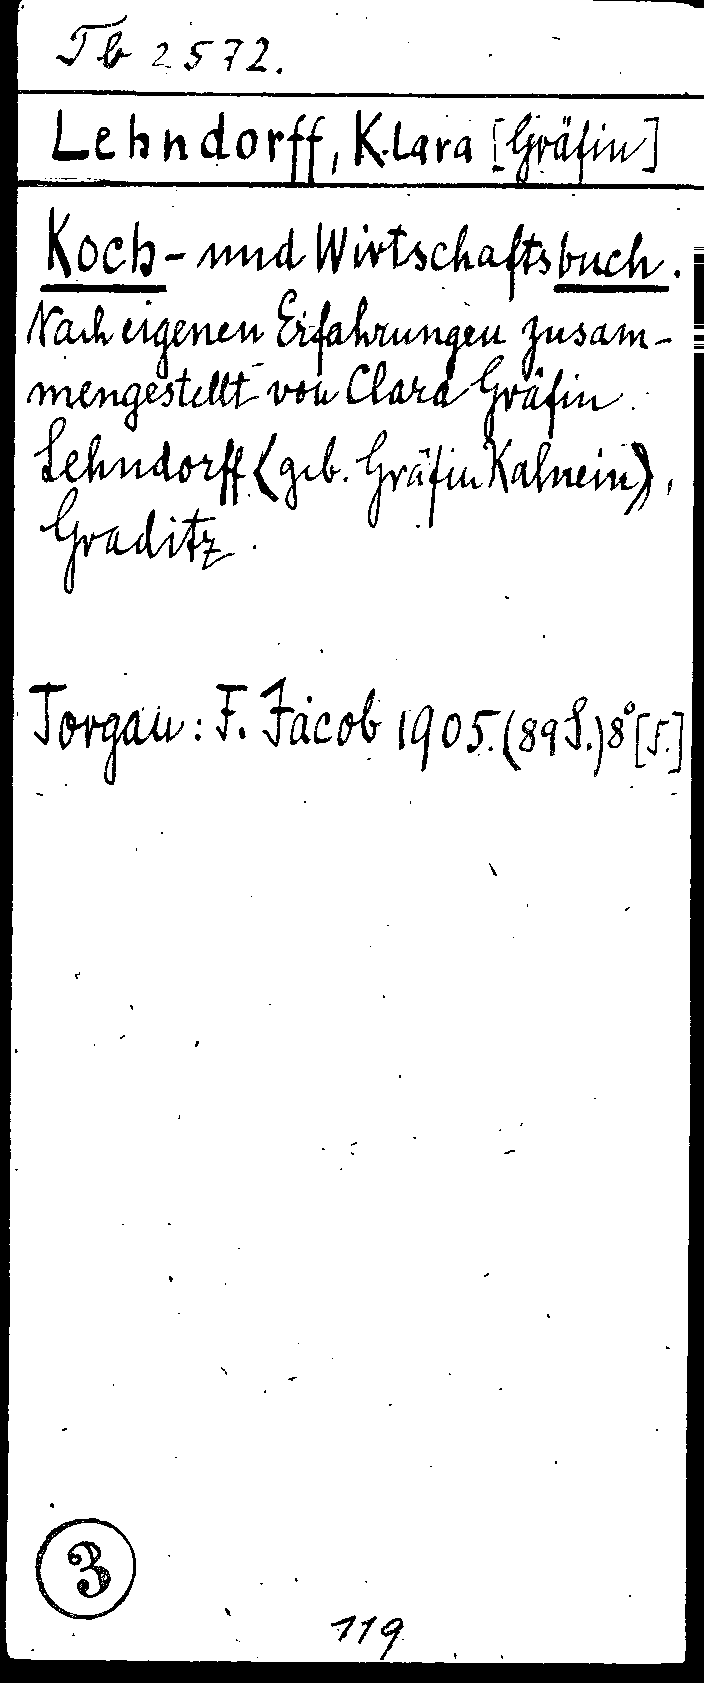 Tb 2572.
Lehndorff, Klara [Gräfin]
Koch- und Wirtschaftsbuch.
Nach eigenen Erfahrungen zusam-
mengestellt von Clara Gräfin
Lehndorff (geb. Gräfin Kalnein),
Graditz.
Torgau: F. Jacob 1905. (89 S.) 8° [S.]
3
119